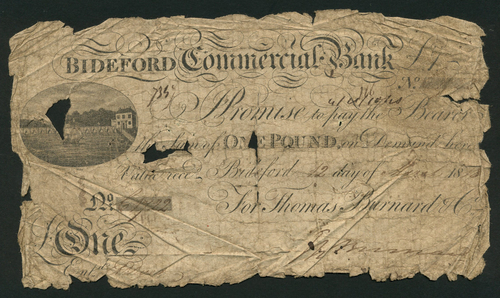 BIDEFORD Commercial Bank £1
No
I Promise to pay the Bearer
the Sum of ONE POUND, on Demand here
Value recd Bideford 12 day of 18
No For Thomas Burnard & Co
£One